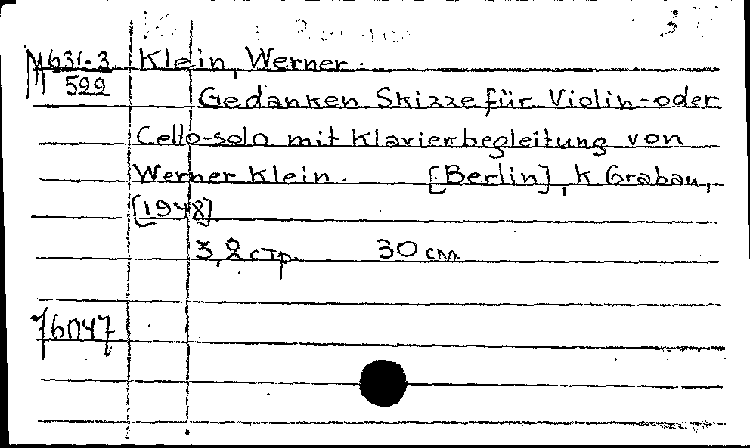 3
М 631-3 Klein, Werner.
522 Gedanken Skizze für Violin-oder
Cello-solo mit Klavierbegleitung von
Werner Klein. [Berlin], K. Grabau,
[1948]
3, 2 стр. 30 см.
76047